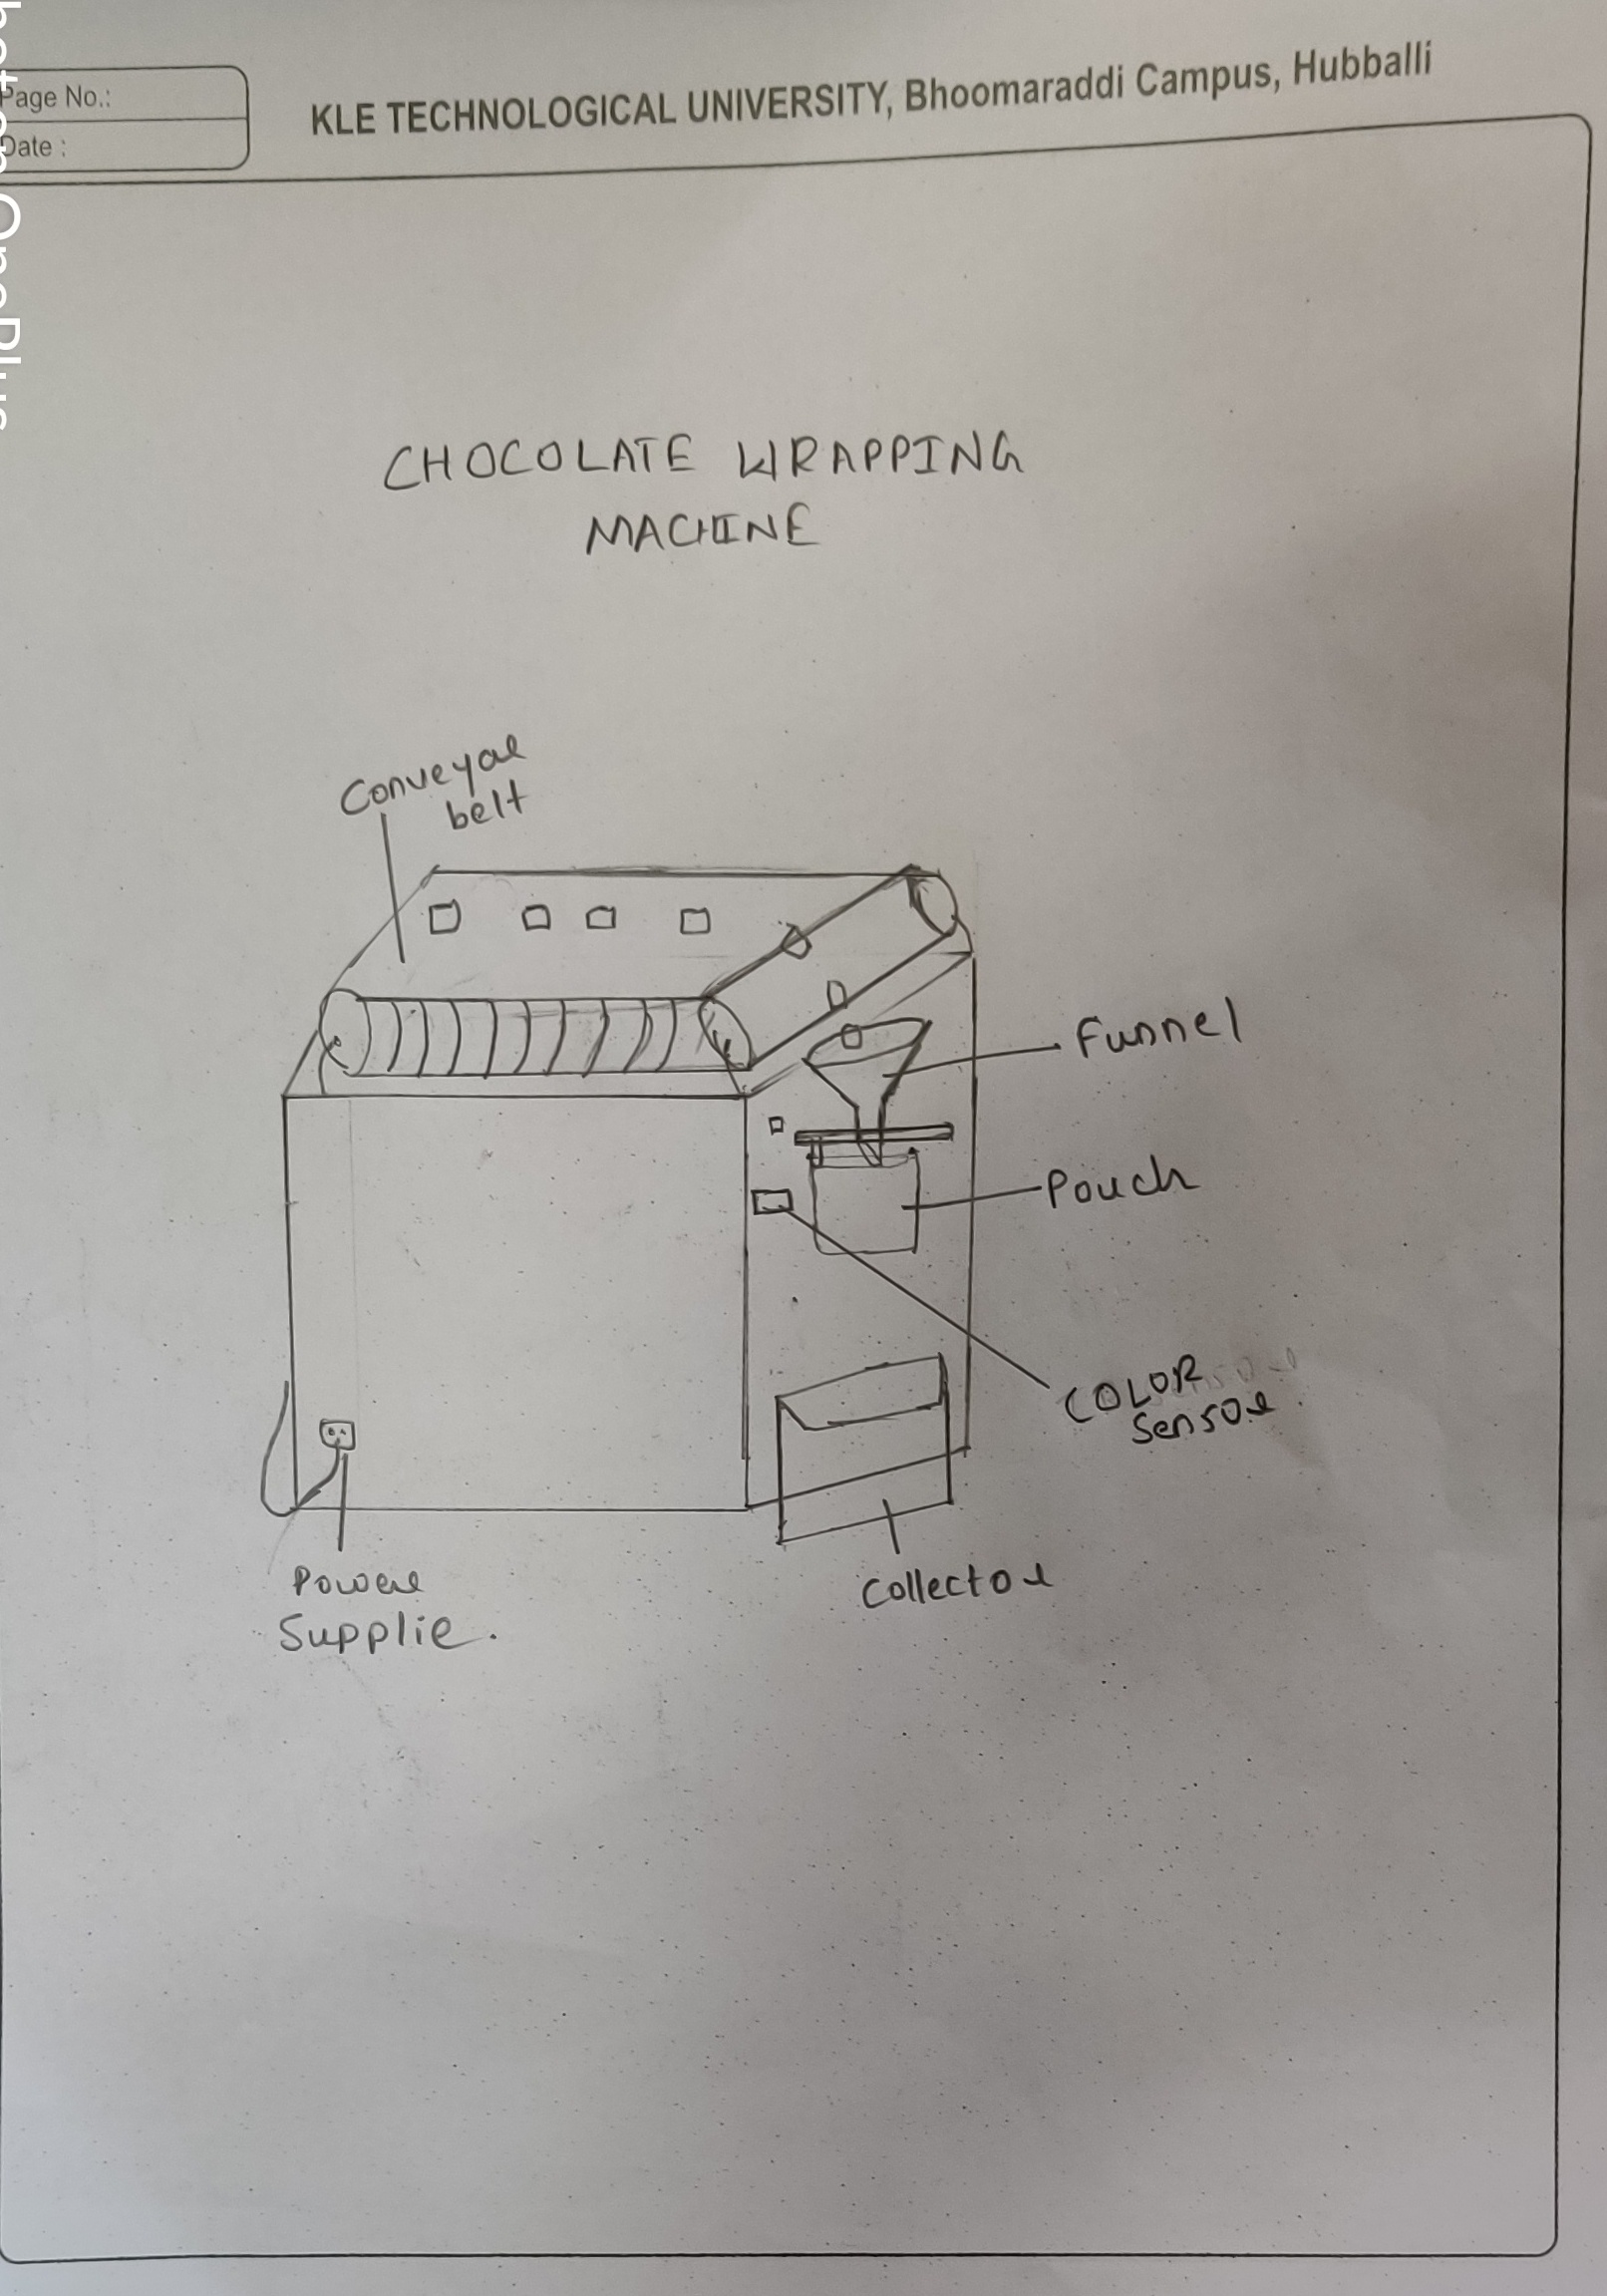 Page No.:
Date :
KLE TECHNOLOGICAL UNIVERSITY, Bhoomaraddi Campus, Hubballi
CHOCOLATE WRAPPING
MACHINE
Conveyor
belt
Funnel
Pouch
COLOR
Sensor
Power
Supplie.
Collector
OnePlus